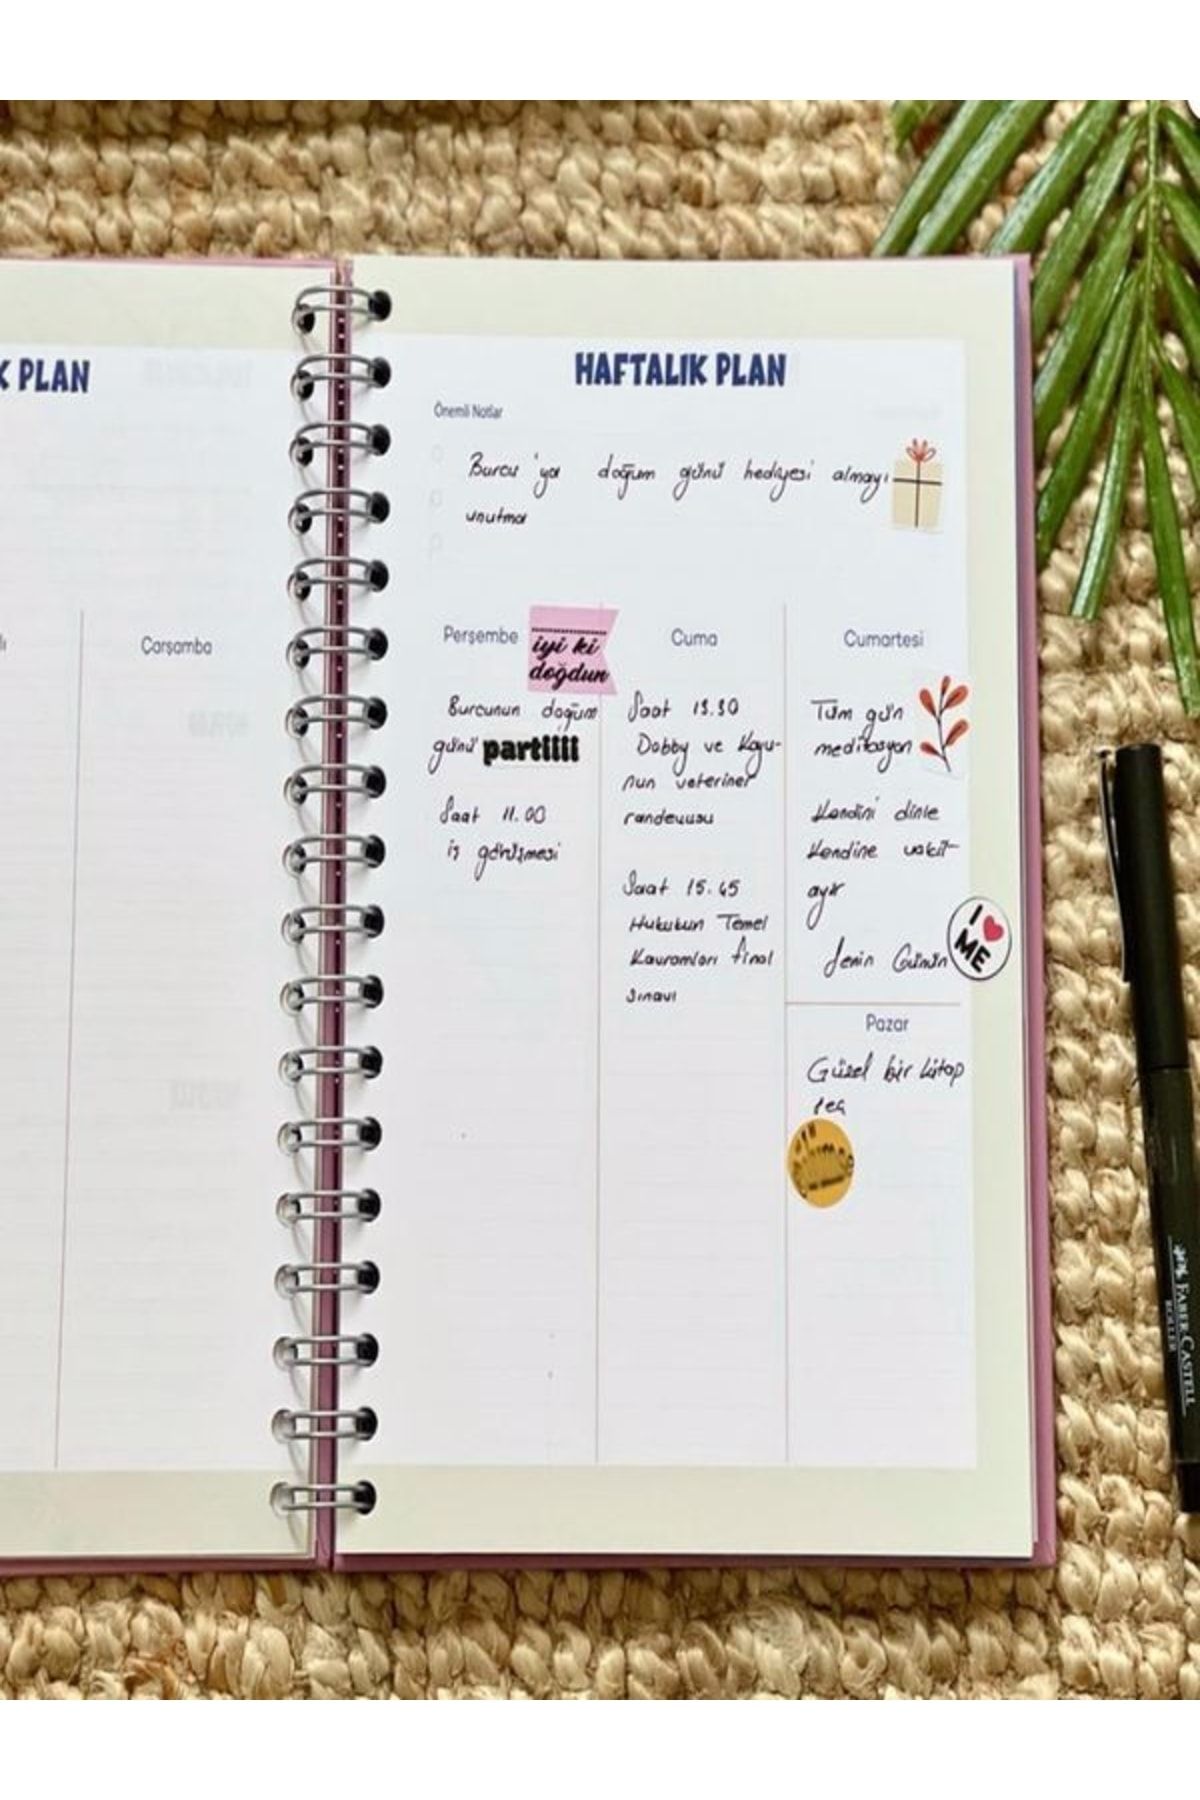 K PLAN
Çarşamba
HAFTALIK PLAN
Önemli Notlar
Burcu'ya doğum günü hediyesi almayı
unutma
Perşembe
iyi ki
doğdun
Burcunun doğum
günü partiiii
Saat 11.00
iş görüşmesi
Cuma
Saat 13.30
Dobby ve Koyu-
nun veteriner
randevusu
Saat 15.45
Hukukun Temel
Kavramları final
sınavı
Cumartesi
Tüm gün
meditasyon
Kendini dinle
Kendine vakit
ayır
Senin Günün
I ME
Pazar
Güzel bir kitap
seç
FABER-CASTELL